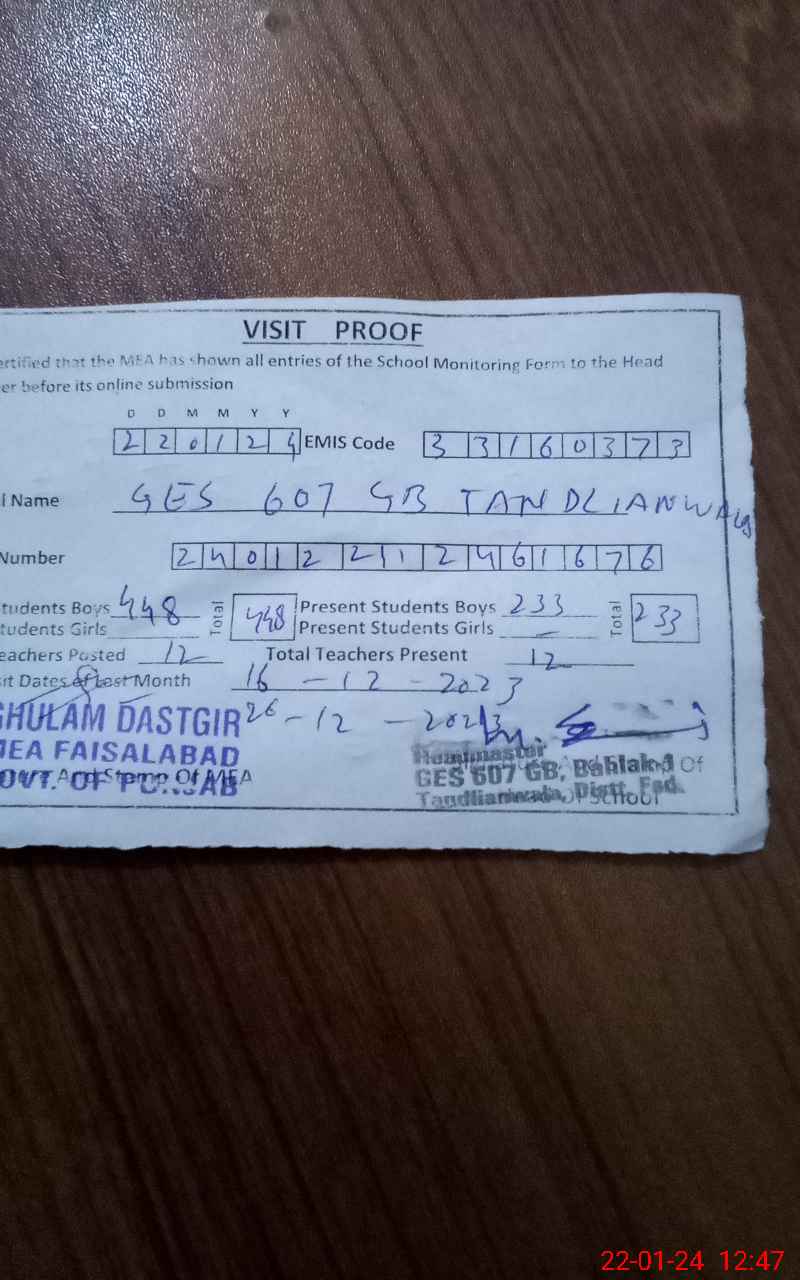 VISIT PROOF
ertified that the MEA has shown all entries of the School Monitoring Form to the Head
er before its online submission
D D M M Y Y
2 2 0 1 2 4 EMIS Code 3 3 1 6 0 3 7 3
l Name GES 607 GB TANDLIANWALA
Number 2 4 0 1 2 2 1 1 2 4 6 1 6 7 6
tudents Boys 448 Total 448 Present Students Boys 233 Total 233
tudents Girls Present Students Girls –
eachers Posted 12 Total Teachers Present 12
it Dates of Last Month 16 - 12 - 2023
26 - 12 - 2023
GHULAM DASTGIR
MEA FAISALABAD
And Stamp Of MEA
OVT. OF PUNJAB
Headmaster
GES 607 GB, Bahlak Of
Tandlianwala, Distt. Fsd.
Of School
22-01-24 12:47